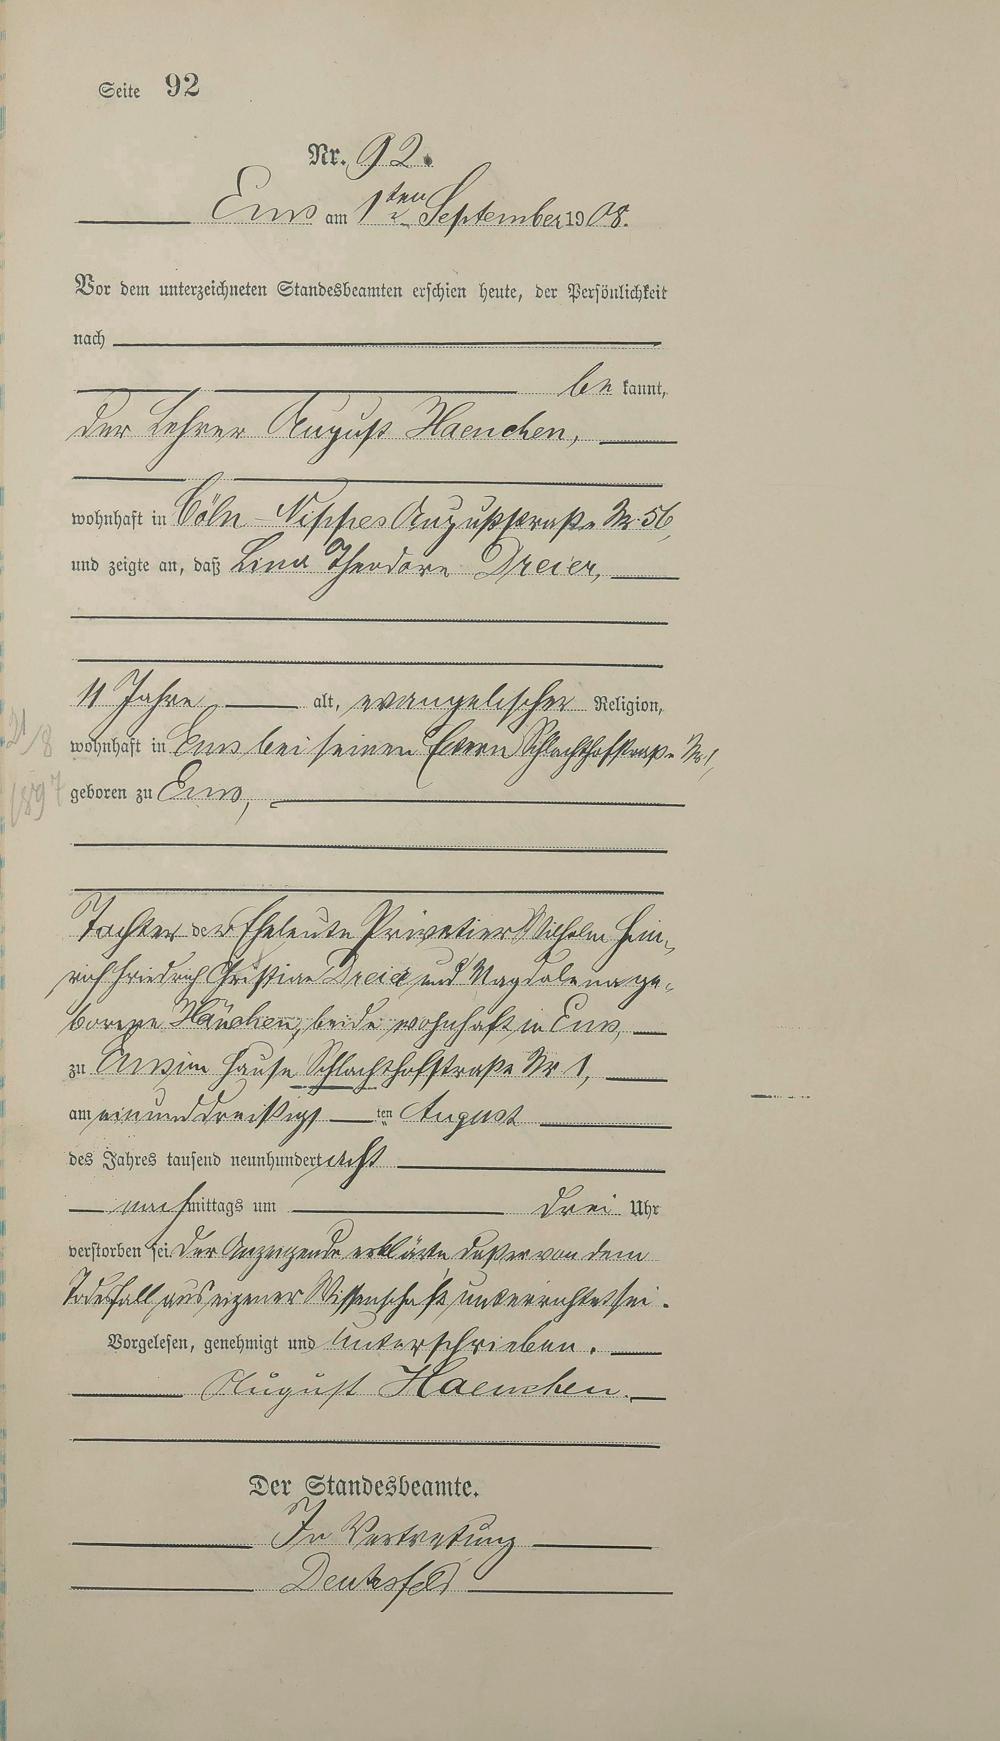 Seite 92
Nr. 92.
Ems am 1ten September 1908.
Vor dem unterzeichneten Standesbeamten erschien heute, der Persönlichkeit
nach
be kannt,
der Lehrer August Haenchen,
wohnhaft in Cöln-Nippes Auguststraße Nr. 56,
und zeigte an, daß Lina Theodore Dreier,
11 Jahre alt, evangelischer Religion,
21/8
wohnhaft in Ems bei seinen Eltern Schlachthofstraße Nr 1,
1897
geboren zu Ems,
Tochter der Eheleute Privatier Wilhelm Hein-
rich Friedrich Christian Dreier und Magdalena ge-
borene Hänchen, beide wohnhaft in Ems,
zu Ems im Hause Schlachthofstraße Nr 1,
am einunddreißigs ten August
des Jahres tausend neunhundert acht
nachmittags um drei Uhr
verstorben sei. Der Anzeigende erklärte, daß er von dem
Todesfall aus eigener Wissenschaft unterrichtet sei.
Vorgelesen, genehmigt und unterschrieben.
August Haenchen.
Der Standesbeamte.
In Vertretung